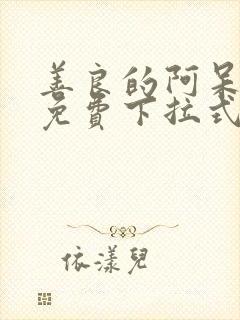 善良的阿呆
免費下拉式
依漾兒